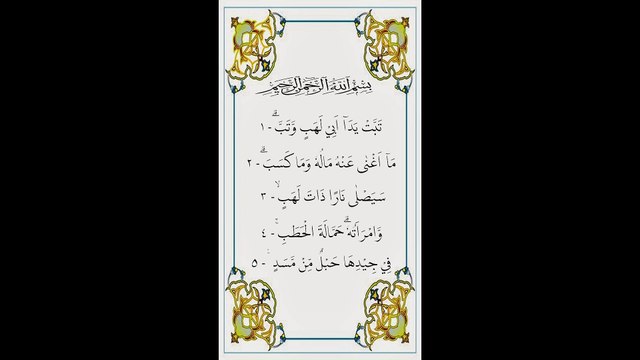 بِسْمِ اللّٰهِ الرَّحْمٰنِ الرَّحِيْمِ
تَبَّتْ يَدَآ اَبِيْ لَهَبٍ وَّتَبَّۗ - ١
مَآ اَغْنٰى عَنْهُ مَالُهٗ وَمَا كَسَبَۗ - ٢
سَيَصْلٰى نَارًا ذَاتَ لَهَبٍۙ - ٣
وَّامْرَاَتُهٗۗ حَمَّالَةَ الْحَطَبِۚ - ٤
فِيْ جِيْدِهَا حَبْلٌ مِّنْ مَّسَدٍ ࣖ - ٥